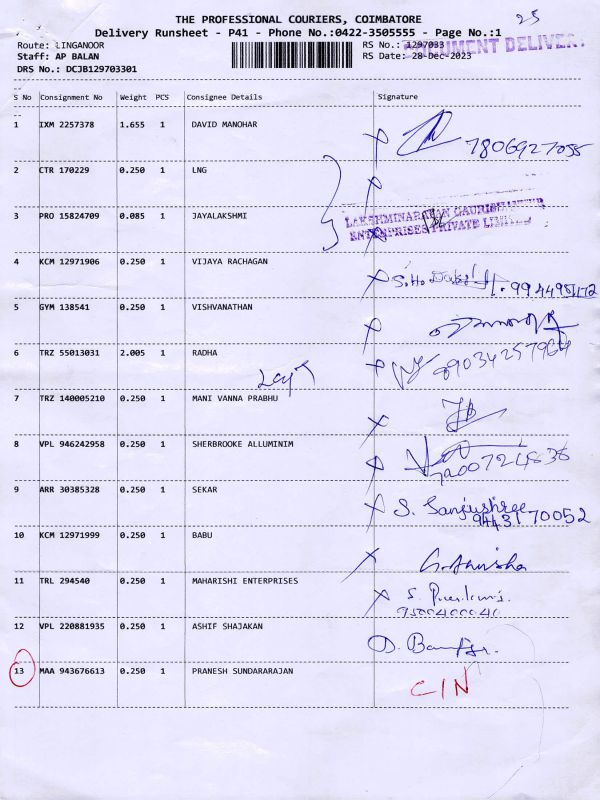 25
THE PROFESSIONAL COURIERS, COIMBATORE
Delivery Runsheet - P41 - Phone No.:0422-3505555 - Page No.:1
Route: LINGANOOR RS No.: 1297033
DOCUMENT DELIVERY
Staff: AP BALAN RS Date: 28-Dec-2023
DRS No.: DCJB129703301
S No Consignment No Weight PCS Consignee Details Signature
1 IXM 2257378 1.655 1 DAVID MANOHAR
7806927055
2 CTR 170229 0.250 1 LNG
3 PRO 15824709 0.085 1 JAYALAKSHMI
LAKSHMINARAYAN GAURISHANKER
ENTERPRISES PRIVATE LIMITED
4 KCM 12971906 0.250 1 VIJAYA RACHAGAN
5 GYM 138541 0.250 1 VISHVANATHAN
6 TRZ 55013031 2.005 1 RADHA
7 TRZ 140005210 0.250 1 MANI VANNA PRABHU
8 VPL 946242958 0.250 1 SHERBROOKE ALLUMINIM
9 ARR 30385328 0.250 1 SEKAR
S. Sanjushree
94431 70052
10 KCM 12971999 0.250 1 BABU
11 TRL 294540 0.250 1 MAHARISHI ENTERPRISES
9500400040
12 VPL 220881935 0.250 1 ASHIF SHAJAKAN
13 MAA 943676613 0.250 1 PRANESH SUNDARARAJAN
C/N